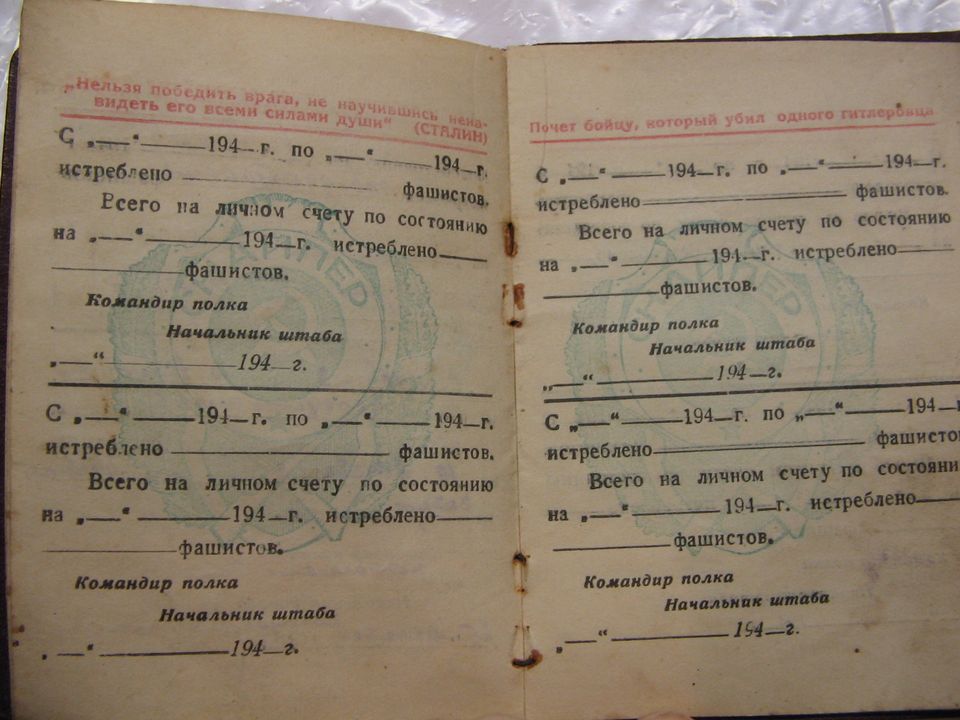 „Нельзя победить врага, не научившись нена-
видеть его всеми силами души“ (СТАЛИН)
С „—“ ——— 194—г. по „—“ ——— 194—г.
истреблено ——— фашистов.
Всего на личном счету по состоянию
на „—“ ——— 194—г. истреблено ———
——— фашистов.
Командир полка
Начальник штаба
„—“ ——— 194—г.
С „—“ ——— 194—г. по „—“ ——— 194—г.
истреблено ——— фашистов.
Всего на личном счету по состоянию
на „—“ ——— 194—г. истреблено ———
——— фашистов.
Командир полка
Начальник штаба
„—“ ——— 194—г.
Почет бойцу, который убил одного гитлеровца
С „—“ ——— 194—г. по „—“ ——— 194—г.
истреблено ——— фашистов.
Всего на личном счету по состоянию
на „—“ ——— 194—г. истреблено ———
——— фашистов.
Командир полка
Начальник штаба
„—“ ——— 194—г.
С „—“ ——— 194—г. по „—“ ——— 194—г
истреблено ——— фашистов
Всего на личном счету по состояни
на „—“ ——— 194—г. истреблено ———
——— фашистов.
Командир полка
Начальник штаба
„—“ ——— 194—г.
СНАЙПЕР
СНАЙПЕР